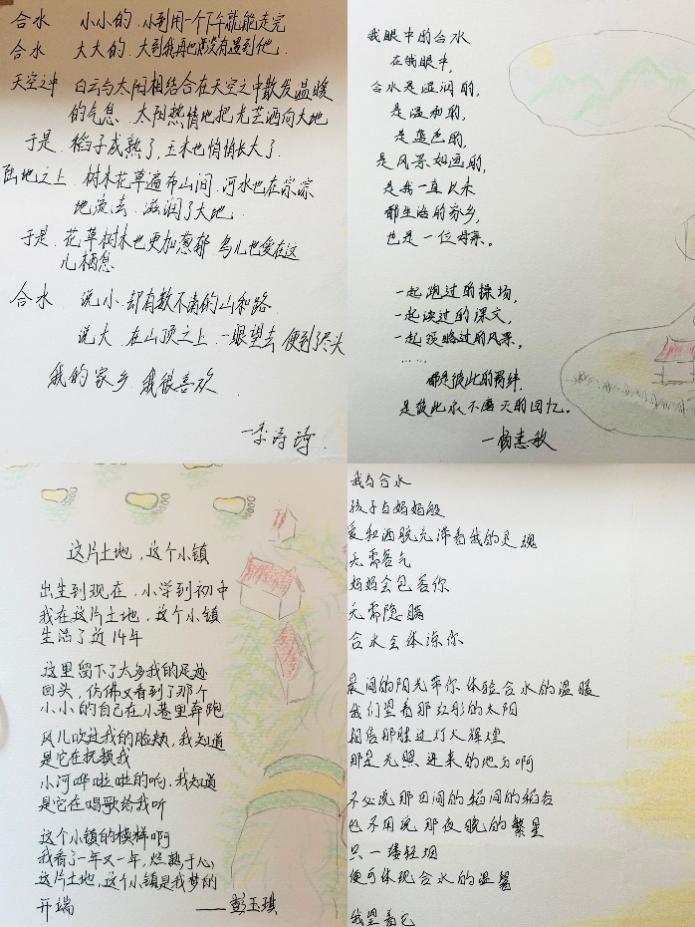 合水 小小的.小到用一个下午就能走完
合水 大大的.大到我再也没有遇到他.
天空之中 白云与太阳相结合在天空之中散发温暖
的气息.太阳热情地把光芒洒向大地
于是.稻子成熟了,玉米也悄悄长大了.
陆地之上.树木花草遍布山间.河水也在淙淙
地流去.滋润了大地.
于是.花草树木也更加葱郁 鸟儿也爱在这
儿栖息
合水 说小.却有数不清的山和路
说大.在山顶之上.一眼望去 便到尽头
我的家乡.我很喜欢.
我眼中的合水
在我眼中,
合水是湿润的,
是温和的,
是蓝色的,
是风景如画的,
是我一直以来
都生活的家乡,
也是一位母亲。
一起跑过的操场,
一起读过的课文,
一起领略过的风景,
……
都是彼此的羁绊
是彼此永不磨灭的回忆。
这片土地,这个小镇
出生到现在,小学到初中
我在这片土地,这个小镇
生活了近14年
这里留下了太多我的足迹
回头,仿佛又看到了那个
小小的自己在小巷里奔跑
风儿吹过我的脸颊,我知道
是它在抚摸我
小河哗啦啦的响,我知道
是它在唱歌给我听
这个小镇的模样啊
我看了一年又一年,烂熟于心,
这片土地,这个小镇是我梦的
开端
——彭玉琪
我与合水
孩子与妈妈般
爱和洒脱充沛着我的灵魂
无需客气
妈妈会包容你
无需隐瞒
合水会体谅你
晨间的阳光带你体验合水的温暖
我们望着那红彤的太阳
胜过灯火辉煌
那是光照进来的地方啊
不必说那田间的稻
也不用说那夜晚的繁星
只一缕轻烟
便可体现合水的温馨
我望着它